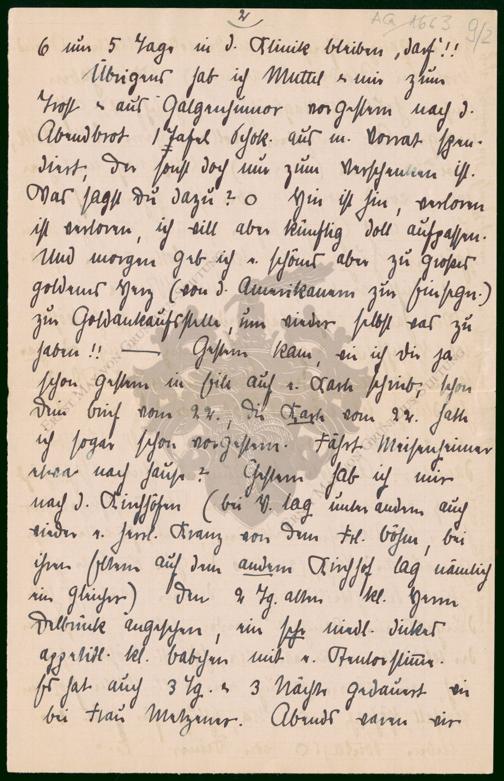 2
AG 1663 9/2
6 um 5 Tage in d. Klinik bleiben „darf“!!
Übrigens hab ich Muttel u. mir zum
Trost u. aus Galgenhumor vorgestern nach d.
Abendbrot 1 Tafel Schok. aus m. Vorrat spen-
diert, der sonst doch nur zum Verschenken ist.
Was sagst Du dazu? O Hin ist hin, verloren
ist verloren, ich will aber künftig doll aufpassen.
Und morgen geb ich e. schönes aber zu großes
goldenes Herz (von d. Amerikanern zur Einsegn.)
zur Goldankaufsstelle, um wieder selbst was zu
haben!! — Gestern kam, wie ich Dir ja
schon gestern in Eile auf e. Karte schrieb, schon
Dein Brief vom 22., die Karte vom 22. hatte
ich sogar schon vorgestern. Fährt Meisenheimer
etwa nach Hause? Gestern hab ich mir
nach d. Kirchhöfen (bei V. lag unter andern auch
wieder e. herrl. Kranz von dem Frl. Böhm, bei
ihren Eltern auf dem andern Kirchhof lag nämlich
ein gleicher) den 2 Tg. alten kl. Herrn
Delbrück angesehen, ein sehr niedl. dickes
appetitl. kl. Babchen mit e. Stentorstimme.
Es hat auch 3 Tg. u. 3 Nächte gedauert wie
bei Frau Metzener. Abends waren wir
ERNST MORITZ
STIFTUNG